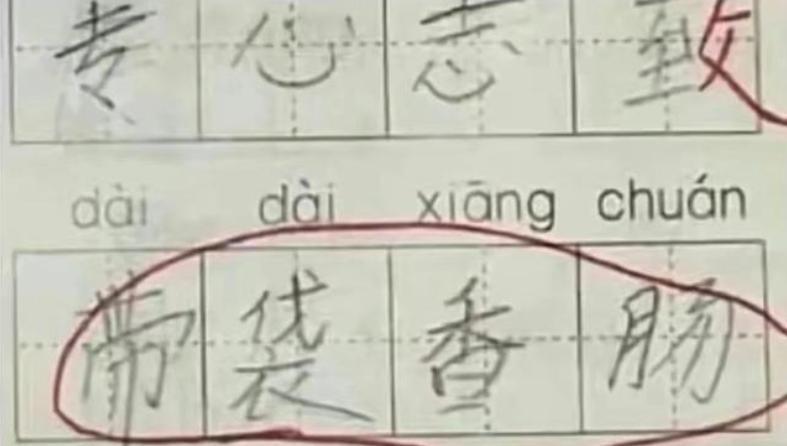 专心志致
dài dài xiāng chuán
带袋香肠